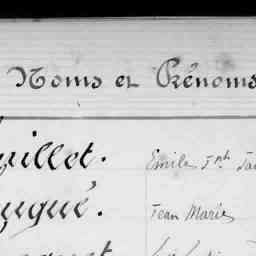 Noms et Prénoms
uillet. Emile Jph
ugué. Jean Marie